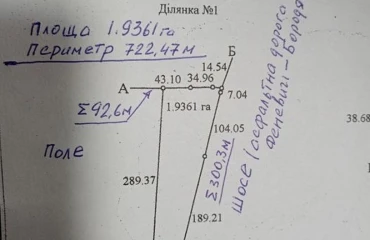 Ділянка №1
Площа 1.9361 га
Периметр 722,47м
Б
14.54
А
43.10 34.96
7.04
Σ92,6м
1.9361 га
104.05
Поле
Σ300,3м
шосе (асфальтна дорога
Феневичі – Бородя
38.68
289.37
189.21